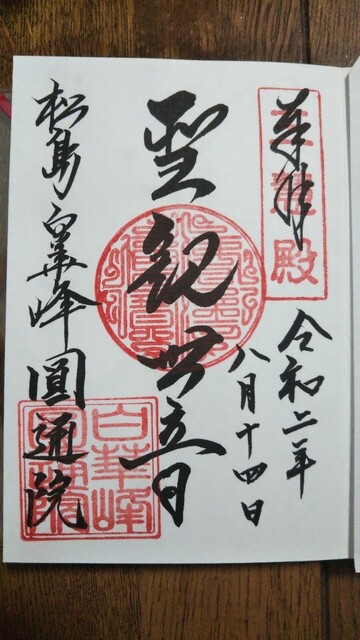 奉拝
三慧殿
令和二年
八月十四日
聖観世音
松島白華峰圓通院
白華峰